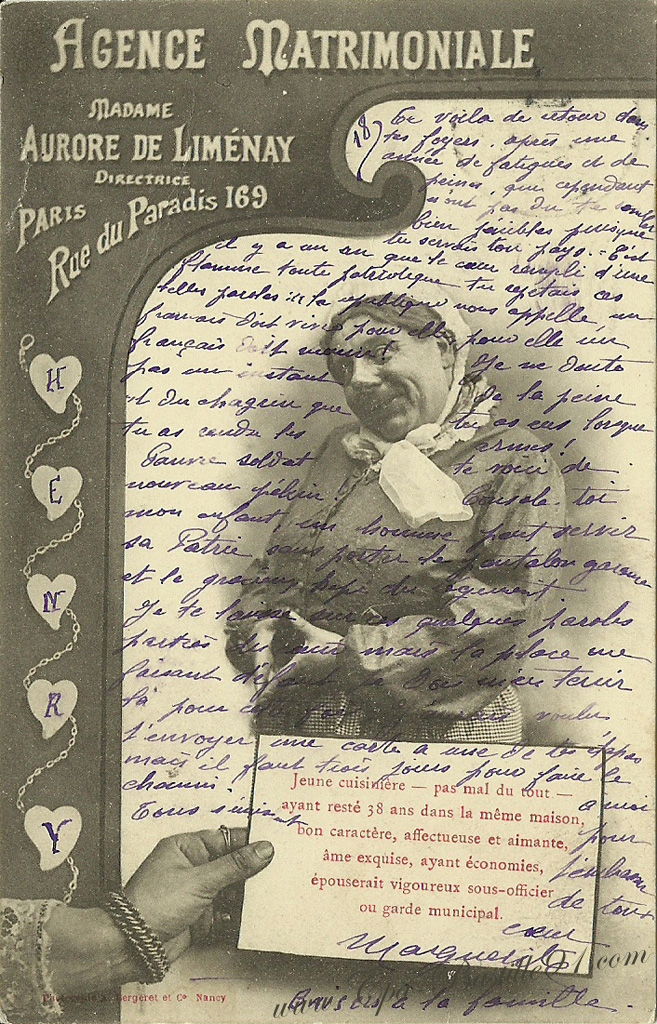 AGENCE MATRIMONIALE
MADAME
AURORE DE LIMÉNAY
DIRECTRICE
PARIS
Rue du Paradis 169
H
E
N
R
Y
18) Te voila de retour dans
tes foyers, après une
année de fatigues et de
peines, que cependant
ont pas du te
bien pénibles puisque
tu servais ton pays. C'est
il y a un an que le cœur rempli d'une
flamme toute patriotique tu repetais ces
belles paroles: la république nous appelle, un
français doit vivre pour elle, pour elle un
français doit mourir! Je ne doute
pas un instant de la peine
et du chagrin que tu as eus lorsque
tu as rendu les armes!
Pauvre soldat te voici de
nouveau pékin! Console-toi
mon enfant, un homme peut servir
sa Patrie sans porter le pantalon garance
et le gravey kepi du regiment
Je te laisse sur ces quelques paroles
parties du cœur mais la place me
faisant défaut je dois m'en tenir
là pour cette fois. J'aurais voulu
t'envoyer une carte à une de tes étapes
mais il faut trois jours pour faire le
chemin!
Tous s'unissent à moi
pour
t'embrasser
de tout
cœur
Marguerite
Baisers à la famille.
Jeune cuisinière — pas mal du tout —
ayant resté 38 ans dans la même maison,
bon caractère, affectueuse et aimante,
âme exquise, ayant économies,
épouserait vigoureux sous-officier
ou garde municipal.
Photographie A. Bergeret et Cie Nancy